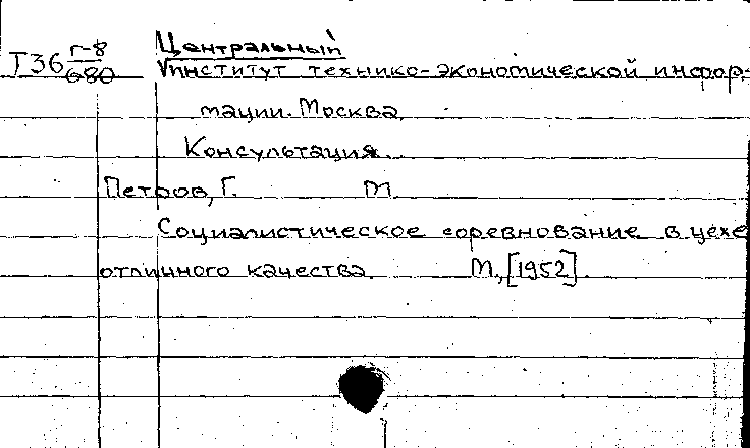 Т36 г-8/680 Центральный
институт технико-экономической инфор-
мации. Москва.
Консультация.
Петров, Г. М.
Социалистическое соревнование в цехе
отличного качества. М., [1952].